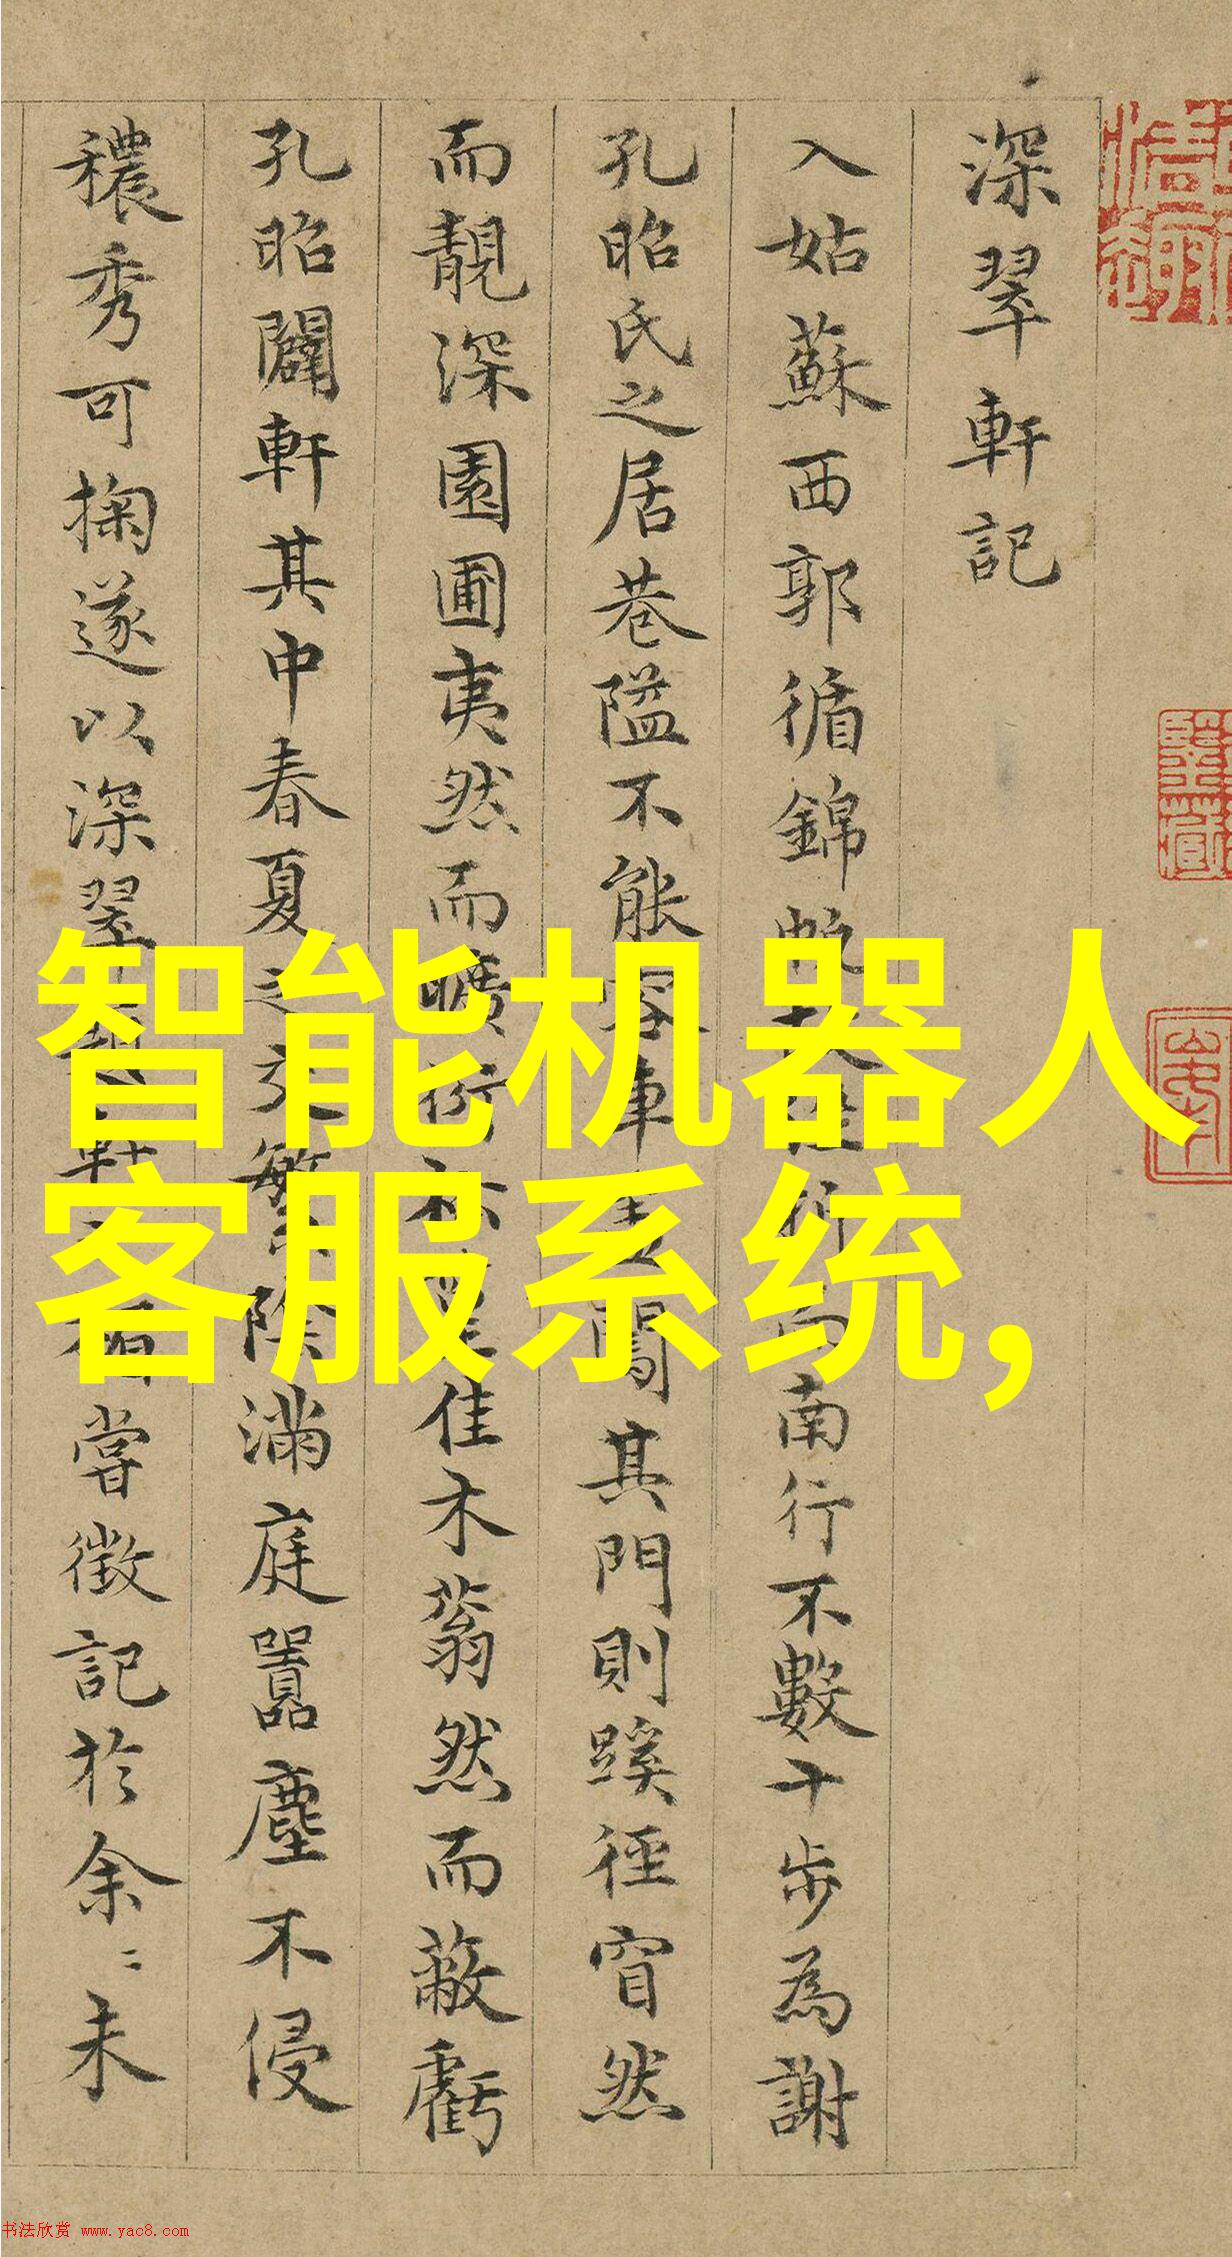 深翠軒記
入姑蘇西郭循錦帆南行不數十步為謝
孔昭氏之居巷隘不能容車其門則蹊徑窅然
而靚深園圃夷然而曠衍佳木蓊然而蔽虧
孔昭闢軒其中春夏之交繁陰滿庭囂塵不侵
穠秀可掬遂以深翠嘗徵記於余〻未
智能机器人
客服系统,
书法欣赏 www.yac8.com